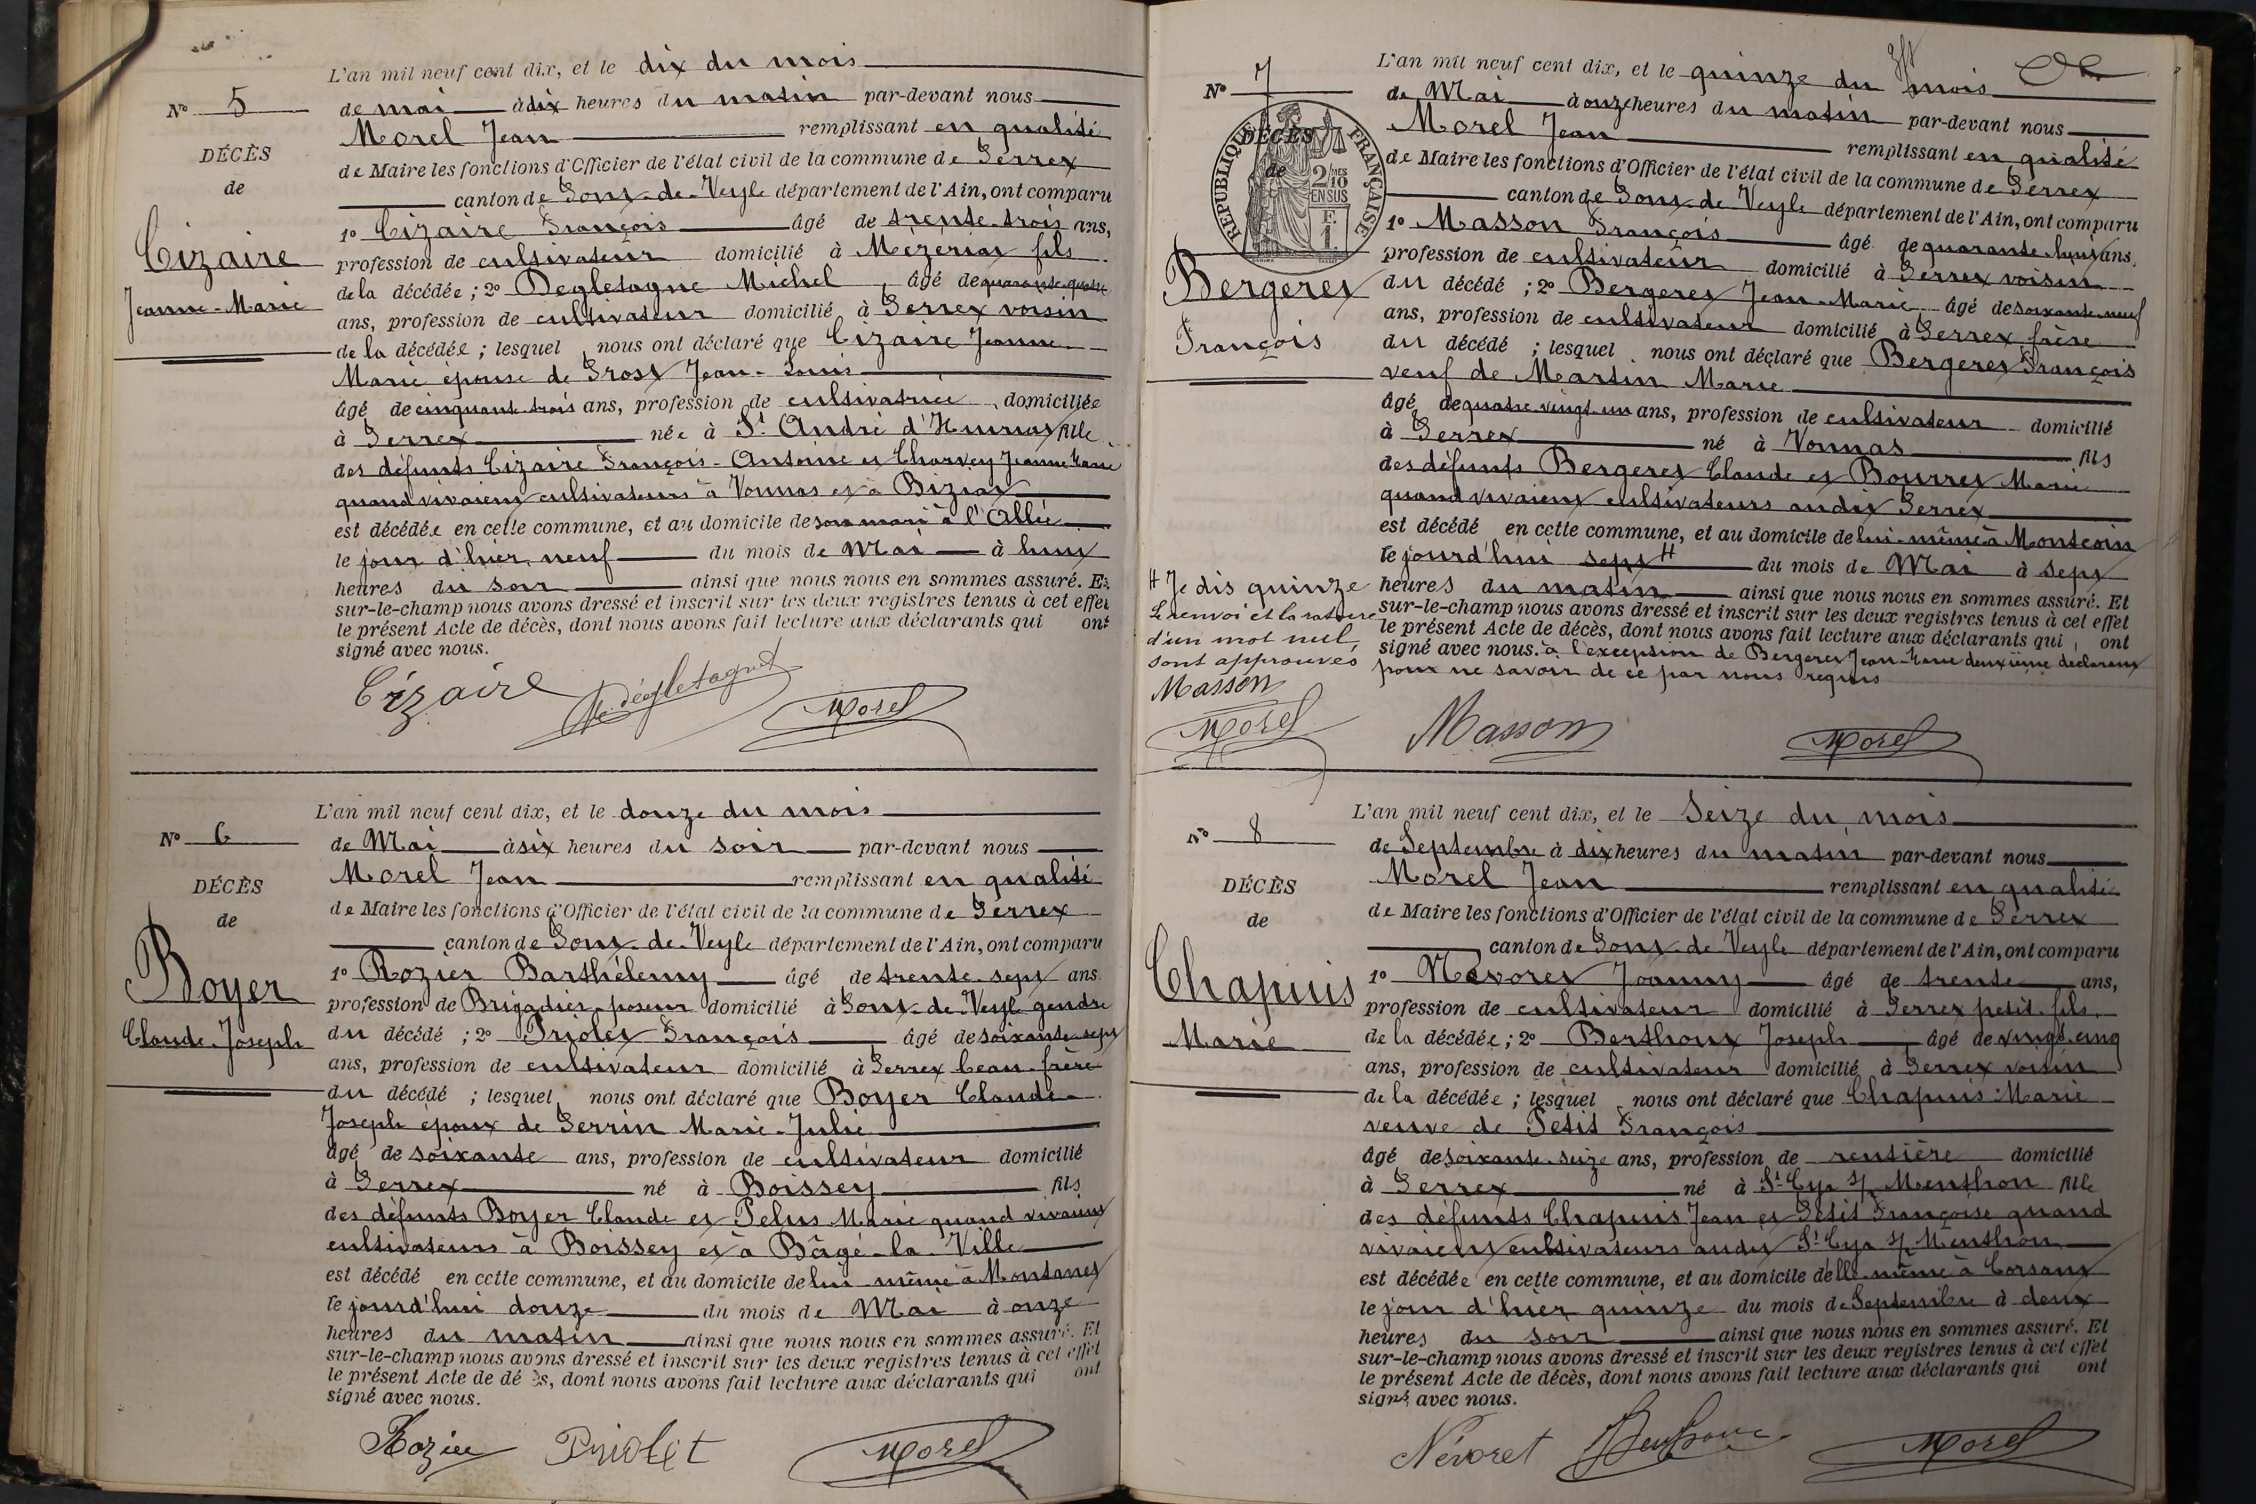 L'an mil neuf cent dix, et le dix du mois
N° 5
de mai à dix heures du matin par-devant nous
Morel Jean remplissant en qualité
DÉCÈS
de Maire les fonctions d'Officier de l'état civil de la commune de Perrex
de
canton de Pont-de-Veyle département de l'Ain, ont comparu
1° Cizaire François âgé de trente-trois ans,
Cizaire
profession de cultivateur domicilié à Mézériat fils
Jeanne-Marie
de la décédée ; 2° Degletagne Michel âgé de quarante-quatre
ans, profession de cultivateur domicilié à Perrex voisin
de la décédée ; lesquel nous ont déclaré que Cizaire Jeanne-
Marie épouse de Gros Jean-Louis
âgé de cinquante-trois ans, profession de cultivatrice domiciliée
à Perrex née à St André d'Huiriat fille
des défunts Cizaire François-Antoine et Charvey Jeanne Marie
quand vivaient cultivateurs à Vonnas et à Biziat
est décédée en cette commune, et au domicile de son mari à l'Allée
le jour d'hier neuf du mois de Mai à huit
heures du soir ainsi que nous nous en sommes assuré. Et
sur-le-champ nous avons dressé et inscrit sur les deux registres tenus à cet effet
le présent Acte de décès, dont nous avons fait lecture aux déclarants qui ont
signé avec nous.
Cizaire Degletagne Morel
L'an mil neuf cent dix, et le douze du mois
N° 6
de Mai à six heures du soir par-devant nous
Morel Jean remplissant en qualité
DÉCÈS
de Maire les fonctions d'Officier de l'état civil de la commune de Perrex
de
canton de Pont-de-Veyle département de l'Ain, ont comparu
1° Rozier Barthélemy âgé de trente-sept ans
Boyer
profession de Brigadier-poseur domicilié à Pont-de-Veyle gendre
Claude-Joseph
du décédé ; 2° Priolet François âgé de soixante-sept
ans, profession de cultivateur domicilié à Perrex beau-frère
du décédé ; lesquel nous ont déclaré que Boyer Claude-
Joseph époux de Perrin Marie-Julie
âgé de soixante ans, profession de cultivateur domicilié
à Perrex né à Boissey fils
des défunts Boyer Claude et Pelus Marie quand vivaient
cultivateurs à Boissey et à Bâgé-la-Ville
est décédé en cette commune, et au domicile de lui-même à Montanet
le jourd'hui douze du mois de Mai à onze
heures du matin ainsi que nous nous en sommes assuré. Et
sur-le-champ nous avons dressé et inscrit sur les deux registres tenus à cet effet
le présent Acte de décès, dont nous avons fait lecture aux déclarants qui ont
signé avec nous.
Rozier Priolet Morel
L'an mil neuf cent dix, et le quinze du mois
N° 7
de Mai à onze heures du matin par-devant nous
Morel Jean remplissant en qualité
DÉCÈS
de Maire les fonctions d'Officier de l'état civil de la commune de Perrex
de
RÉPUBLIQUE FRANÇAISE
2/10 MES
EN SUS
F.
1.
canton de Pont-de-Veyle département de l'Ain, ont comparu
1° Masson François âgé de quarante-huit ans,
profession de cultivateur domicilié à Perrex voisin
Bergeret
du décédé ; 2° Bergeret Jean-Marie âgé de soixante-neuf
François
ans, profession de cultivateur domicilié à Perrex frère
du décédé ; lesquel nous ont déclaré que Bergeret François
veuf de Martin Marie
âgé de quatre-vingt-un ans, profession de cultivateur domicilié
à Perrex né à Vonnas fils
des défunts Bergeret Claude et Bourret Marie
quand vivaient cultivateurs audit Perrex
est décédé en cette commune, et au domicile de lui-même à Montcoin
le jourd'hui sept # du mois de Mai à sept
heures du matin ainsi que nous nous en sommes assuré. Et
sur-le-champ nous avons dressé et inscrit sur les deux registres tenus à cet effet
le présent Acte de décès, dont nous avons fait lecture aux déclarants qui ont
signé avec nous. à l'exception de Bergeret Jean-Marie deuxième déclarant
pour ne savoir de ce par nous requis
# Je dis quinze
Le renvoi et la rature
d'un mot nul,
sont approuvés
Masson
Morel
Masson Morel
L'an mil neuf cent dix, et le Seize du mois
N° 8
de Septembre à dix heures du matin par-devant nous
Morel Jean remplissant en qualité
DÉCÈS
de Maire les fonctions d'Officier de l'état civil de la commune de Perrex
de
canton de Pont-de-Veyle département de l'Ain, ont comparu
1° Névoret Joanny âgé de trente ans,
Chapuis
profession de cultivateur domicilié à Perrex petit-fils
Marie
de la décédée ; 2° Berthoux Joseph âgé de vingt-cinq
ans, profession de cultivateur domicilié à Perrex voisin
de la décédée ; lesquel nous ont déclaré que Chapuis Marie
veuve de Petit François
âgé de soixante-seize ans, profession de rentière domicilié
à Perrex né à St Cyr s/ Menthon fille
des défunts Chapuis Jean et Petit Françoise quand
vivaient cultivateurs audit St Cyr s/ Menthon
est décédée en cette commune, et au domicile d'elle-même à Corsant
le jour d'hier quinze du mois de Septembre à deux
heures du soir ainsi que nous nous en sommes assuré. Et
sur-le-champ nous avons dressé et inscrit sur les deux registres tenus à cet effet
le présent Acte de décès, dont nous avons fait lecture aux déclarants qui ont
signé avec nous.
Névoret Berthoux Morel